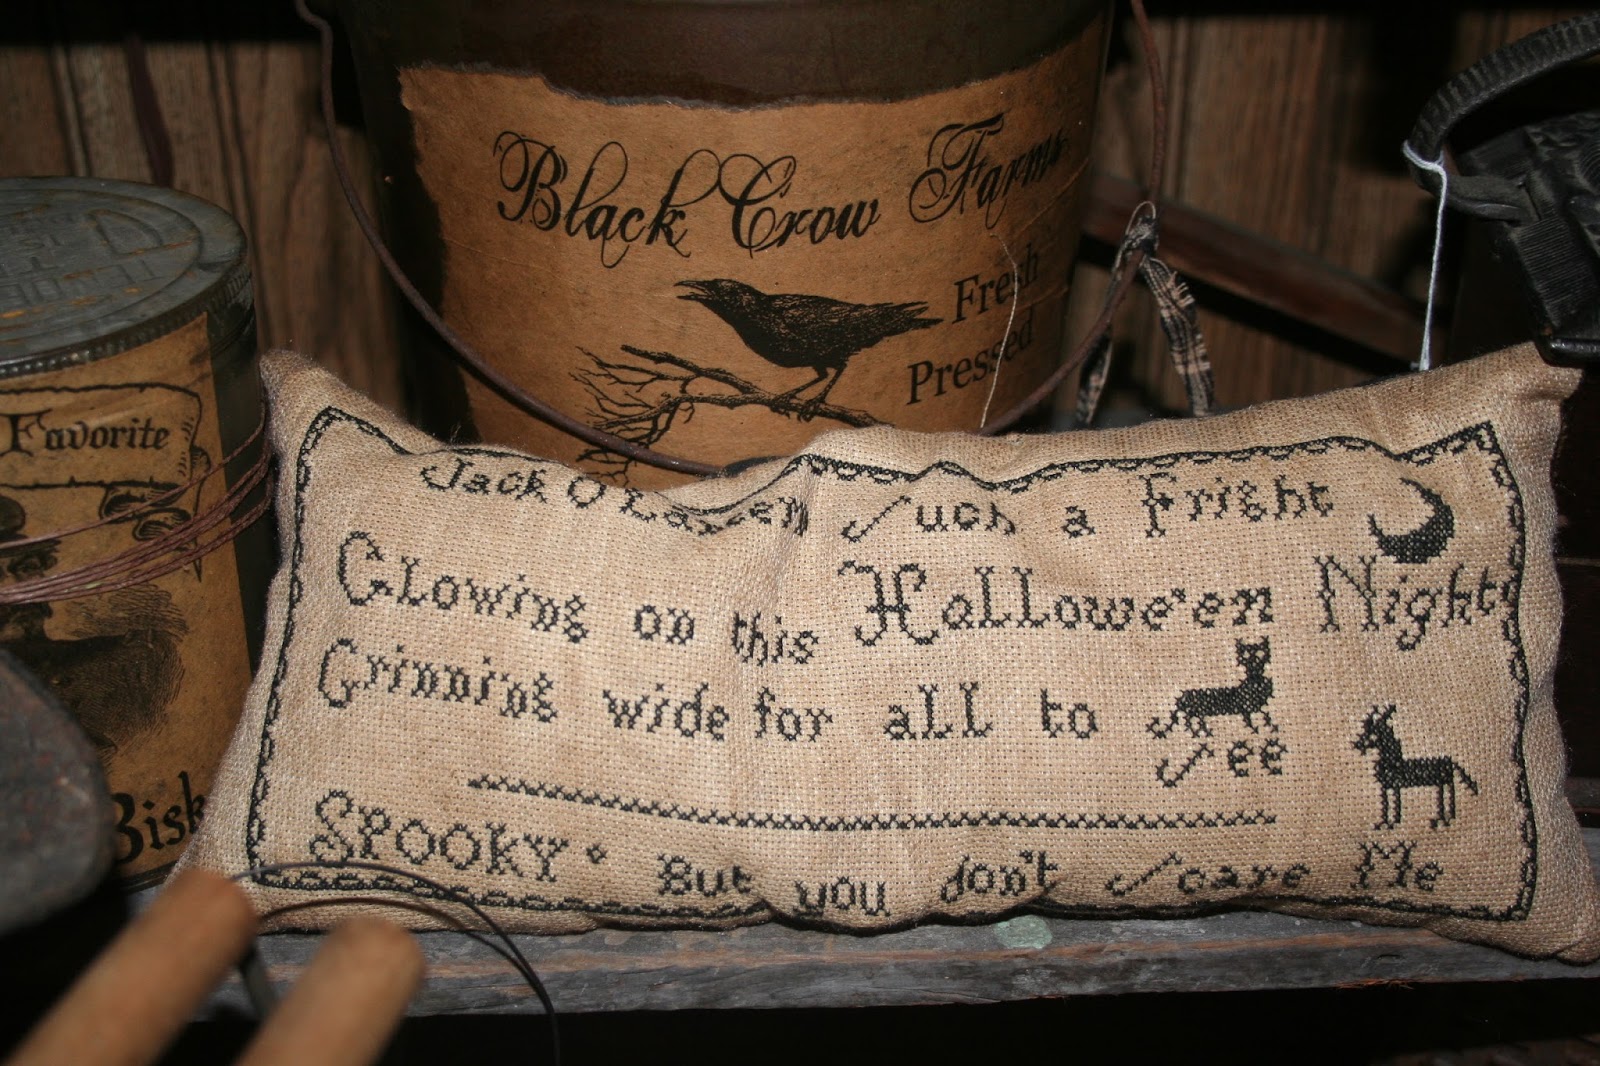 Black Crow Farms
Fresh
Pressed
Favorite
Bisk
Jack O'Lantern Such a Fright
Glowing on this Hallowe'en Night
Grinning wide for all to
See
SPOOKY But you don't Scare Me